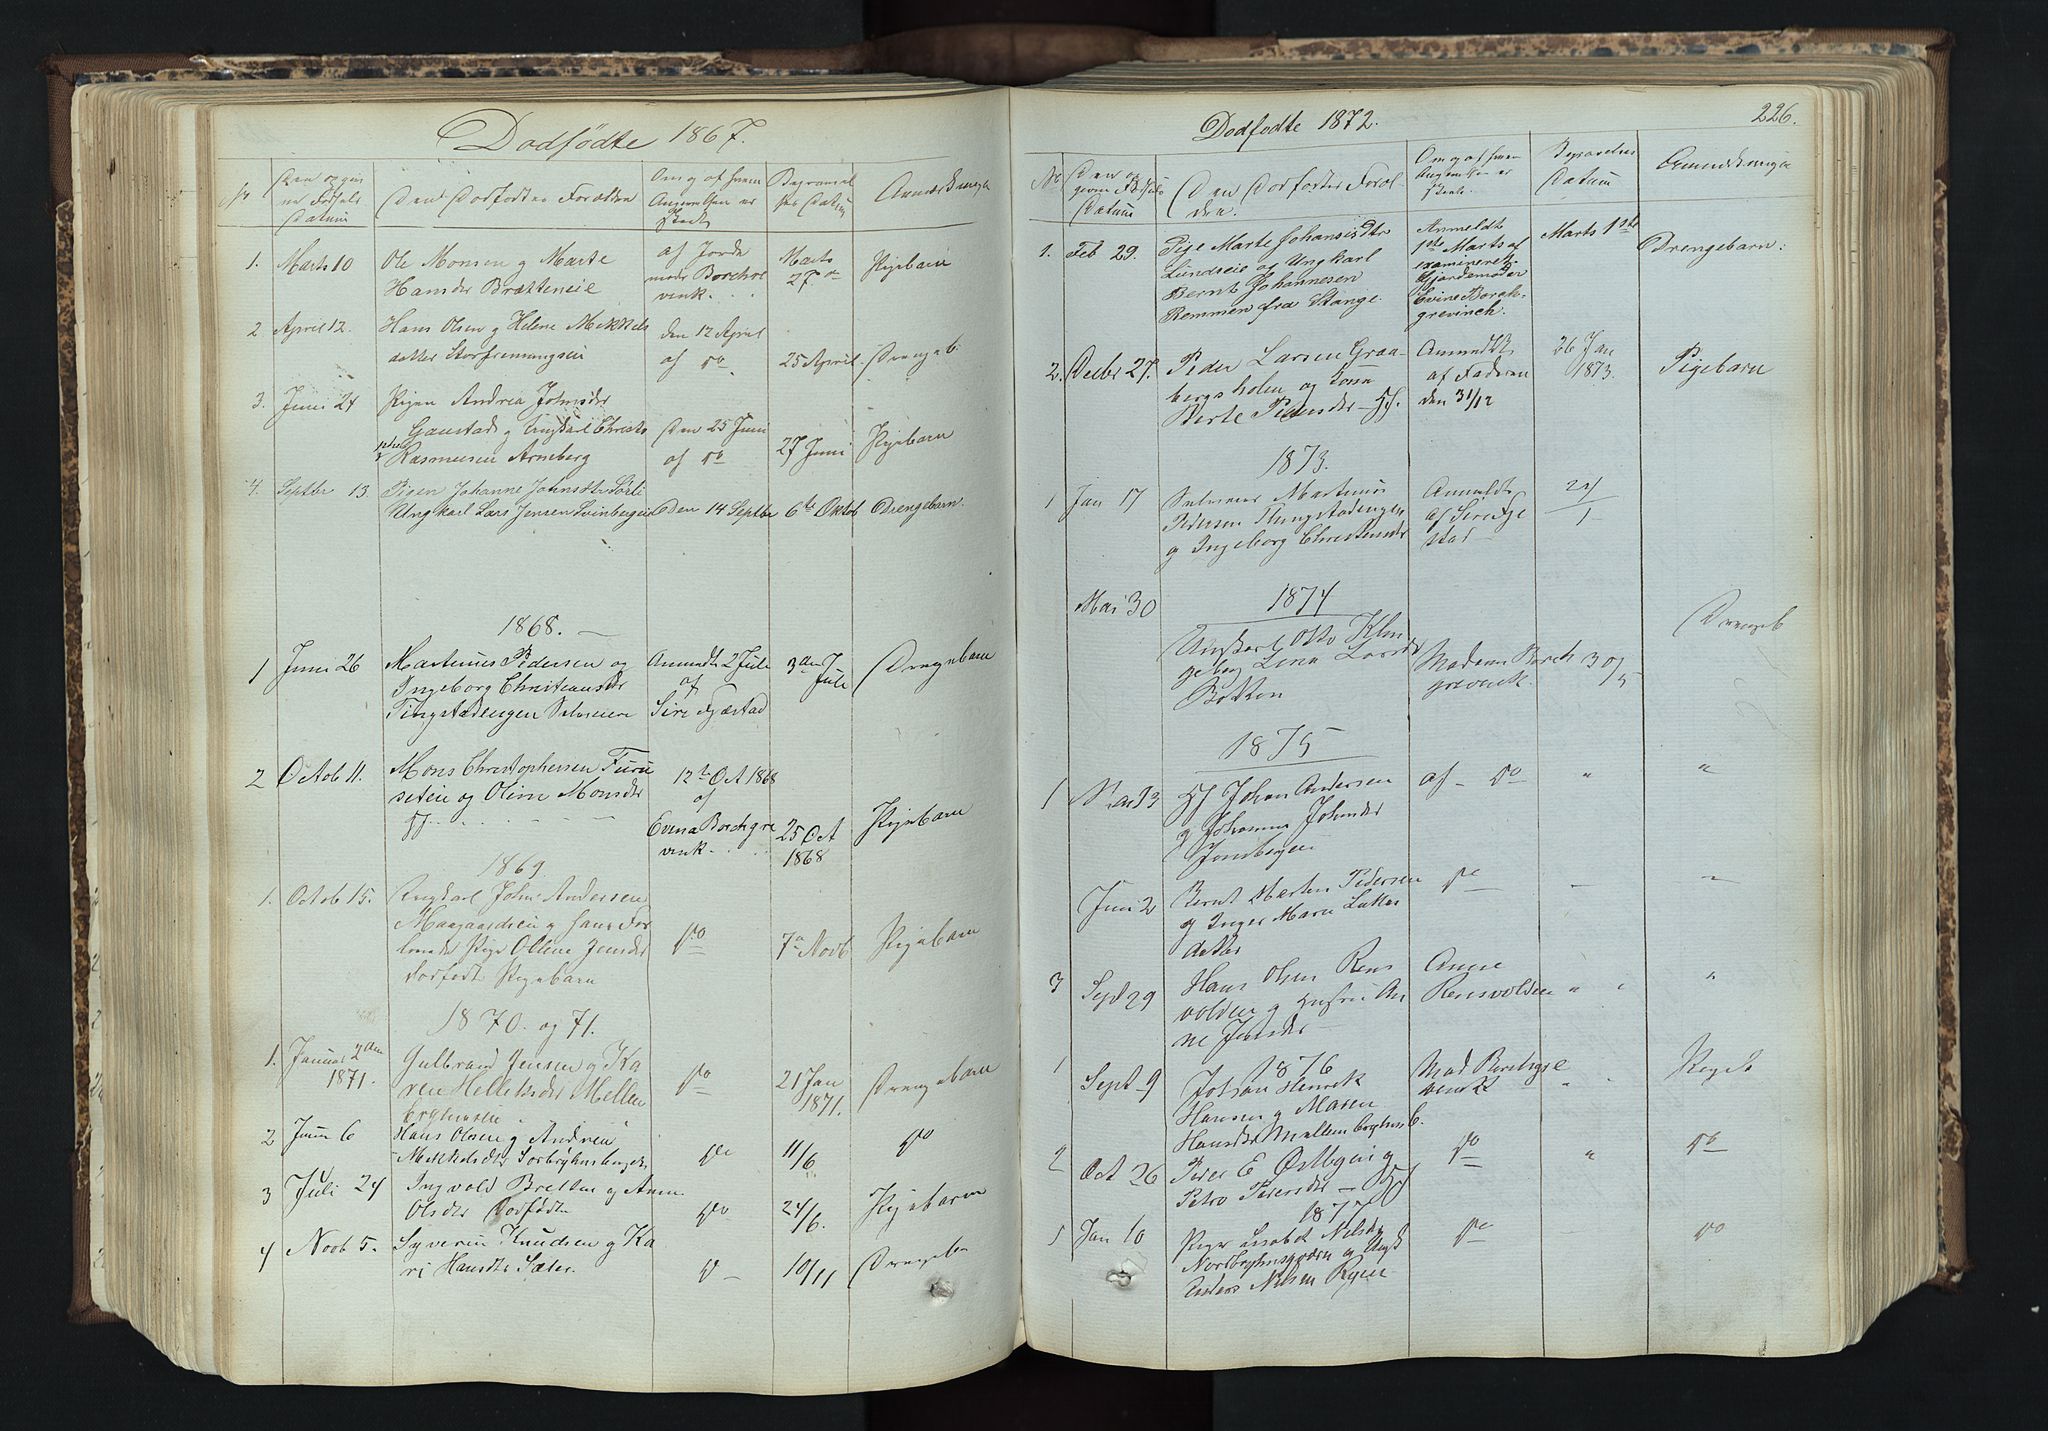 Dodfødte 1867.
No
Den opgivne Fødsels Datum
Den Dodfodtes Forældre
Om og af hvem Angivelsen er Skedt
Begravelses Datum
Anmærkninger
1. Marts 10
Ole Monsen og Marte
Hansdr Brætteneie
af Jorde
moder Borchre
vink.
Marts
27de
Pigebarn
2 April 12.
Hans Olsen og Helene Mikkels
datter
den 12 April
af do
25 April.
Drengeb.
3. Juni 24
Pigen Andrea Johnsdr
Gaustad og Ungkarl Christo
Rasmussen Arneberg
Den 25 Juni
af do
27 Juni
Pigebarn
4. Septbr 13.
Pigen Johanne Johnsdtr Sørli
Ungkarl Lars Jensen Svinbergeie
Den 14 Septbr
6te Oktob
Drengebarn.
1868.
1 Juni 26
Martinus Pedersen og
Ingeborg Christiansdr
Tingstadengen Selveiere
Anmeldt 2 Juli
af
Siri Fjæstad
3die
Juli
Drengebarn
2 Octob 11.
Mons Christophersen Furu
seteie og Oline Monsdr
Hf
12te Oct 1868
af
Evina Borchgre
vink.
25 Oct
1868
Pigebarn
1869
1. Octob 15.
Ungkarl John Andersen
Maagaardseie og hans For
lovede Pige Oline Jensdr
Dodfodt Pigebarn
Do
7de Novb
Pigebarn
1870. og 71.
1. Januar 2den
1871.
Gulbrand Jensen og Ka
ren Helleksdr Mellem
bryhnseie
Do
21 Jan
1871.
Drengebarn
2 Juni 6
Hans Olsen og Andrea
Mikkelsdtr
Do
11/6
Do
3 Juli 24
Ingvald Bretten og Anne
Olsdtr Dodfødt
Do
24/6.
Pigebarn
4 Novb 5.
Syverin Knudsen og Ka
ri Hansdtr Sæter.
D
10/11
Drengebn
Dodfodte 1872.
226.
No
Den opgivne Fødsels Datum
Den Dodfodtes Foræl-
dre.
Om og af hvem Angivelsen er skede.
Begravelses
Datum
Anmærkninger
1. Feb 29.
Pige Marte Johannisdtr
Lundseie og Ungkarl
Bernt Johannesen
Remmen fra Stange.
Anmeldt
1ste Marts af
examineret
Gjordemoder
Evine Borch-
grevinck.
Marts 1ste
Drengebarn.
2. Decbr 27.
Peder Larsen Graa-
bergsholen og Kone
Berte Pedersdtr Hf.
Anmeldt
af Faderen
den 31/12
26 Jan
1873.
Pigebarn
1873.
1 Jan 17
Selveier Martinus
Pedersen Thingstadengen
og Ingeborg Christiansdr
Anmeldt
af Siri Fje
stad
24/1
1874
Mai 30
Ungkarl Otto Klin
geberg Lina Larsdr
Bakken
Madam Borch
grevink.
30/5
Drengeb
1875
1 Mai 3
Hf Johan Andersen
og Johanne Johnsdr
Jonsbergeie
af Do
"
"
Juni 2
Bernt Morten Pedersen
og Inger Marie Lukas
datter
Do
-
"
3 Sept 29
Hans Olsen Rens
volden og Hustru An
ne Jensdr
Anne
Rensvolden
"
"
1876
1 Sept 9
Johan Henrik
Hansen og Maren
Hansdtr Mellembryhns b.
Mad Borchgre
vink
"
Pigeb
2 Oct 26
Peder E Østbyeie og
Petra Pedersdr Hf
Do
"
do
1877
Jan 10
Pige Lisabet Nilsdr
Nordbryhnsgjorden og Ungk
Anders Nilsen Ryeie
Do
-
Do